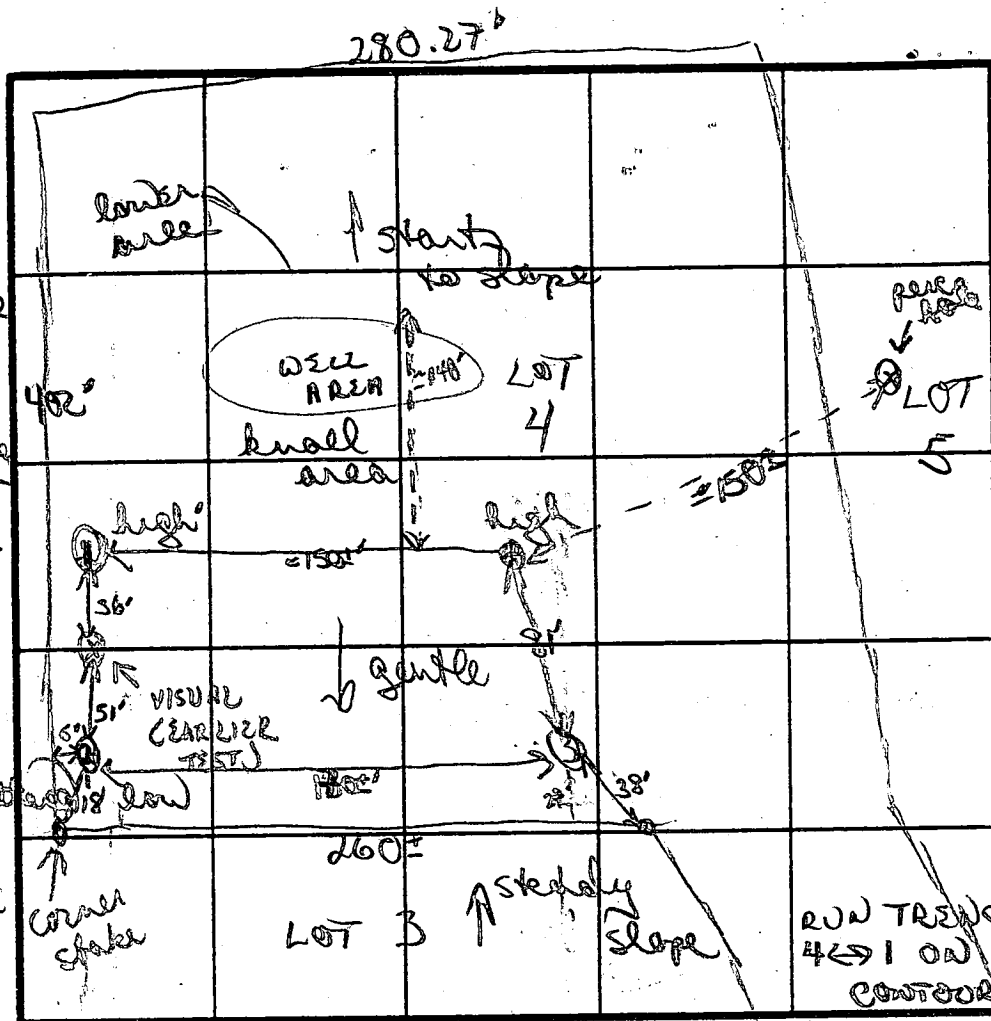 280.27'
lower
area
starts
to slope
perc
hole
WELL
AREA
≈140'
LOT
4
LOT
5
402'
knoll
area
≈150±
high
high
≈150±'
36'
81'
gentle
VISUAL
(EARLIER
TEST)
51'
low
18'
38'
260±
corner
stake
LOT 3
steady
slope
RUN TRENC
4↔1 ON
CONTOUR